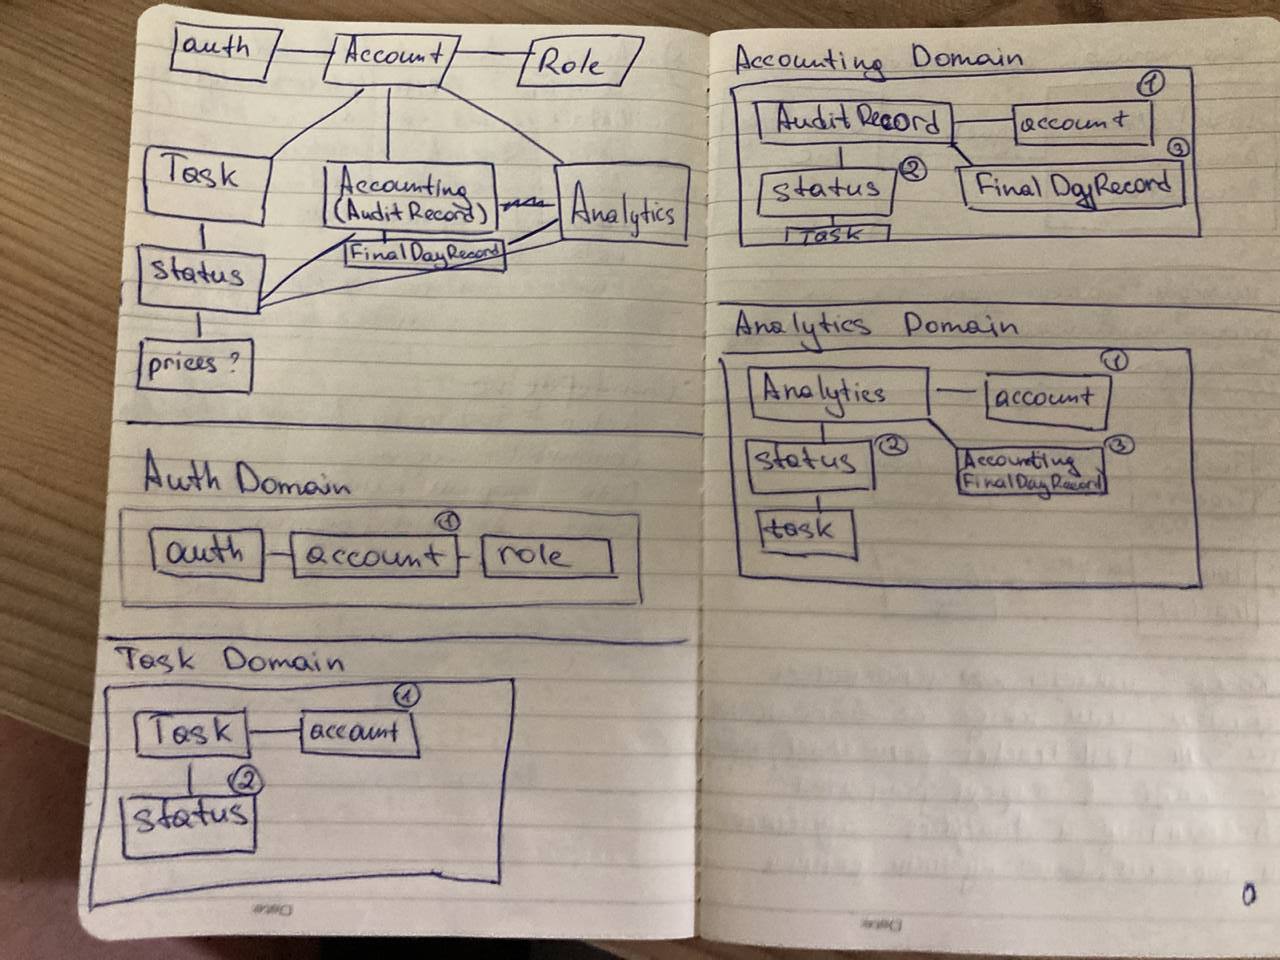 auth
Account
Role
Task
Accounting
(Audit Record)
Analytics
Final Day Record
status
prices?
Auth Domain
1
auth
account
role
Task Domain
1
Task
account
2
status
Date
Accounting Domain
1
Audit Record
account
3
status
2
Final Day Record
Task
Analytics Domain
1
Analytics
account
status
2
3
Accounting
Final Day Record
task
0
Date